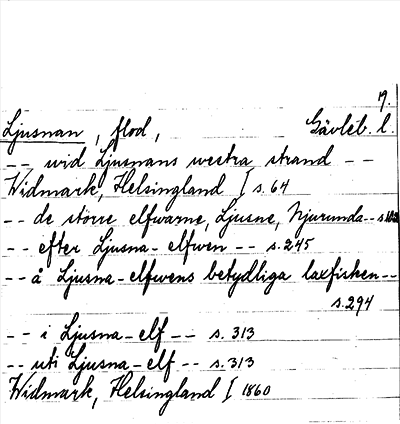 7.
Ljusnan, flod, Gävleb. l.
-- wid Ljusnans westra strand --
Widmark, Helsingland I s. 64
-- de större elfwarne, Ljusne, Njurunda --
-- efter Ljusna-elfwen -- s. 245
-- å Ljusna-elfwens betydliga laxfisken --
s. 294
-- i Ljusna-elf -- s. 313
-- uti Ljusna-elf -- s. 313
Widmark, Helsingland I 1860